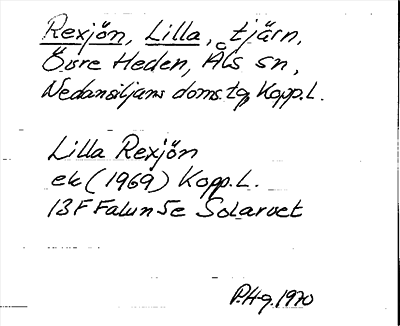 Rexjön, Lilla, tjärn,
Övre Heden, Åls sn,
Nedansiljans doms.tg, Kopp.l.
Lilla Rexjön
ek (1969) Kopp.L.
13F Falun 5e Solarvet
P.Hg. 1970